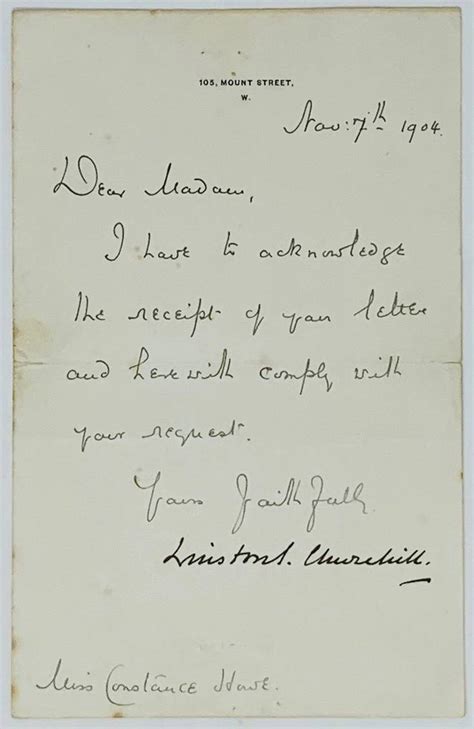 105, MOUNT STREET,
W.
Nov: 7th 1904.
Dear Madam,
I have to acknowledge
the receipt of your letter
and herewith comply with
your request.
Yours faithfully
Winston S. Churchill.
Miss Constance Howe.